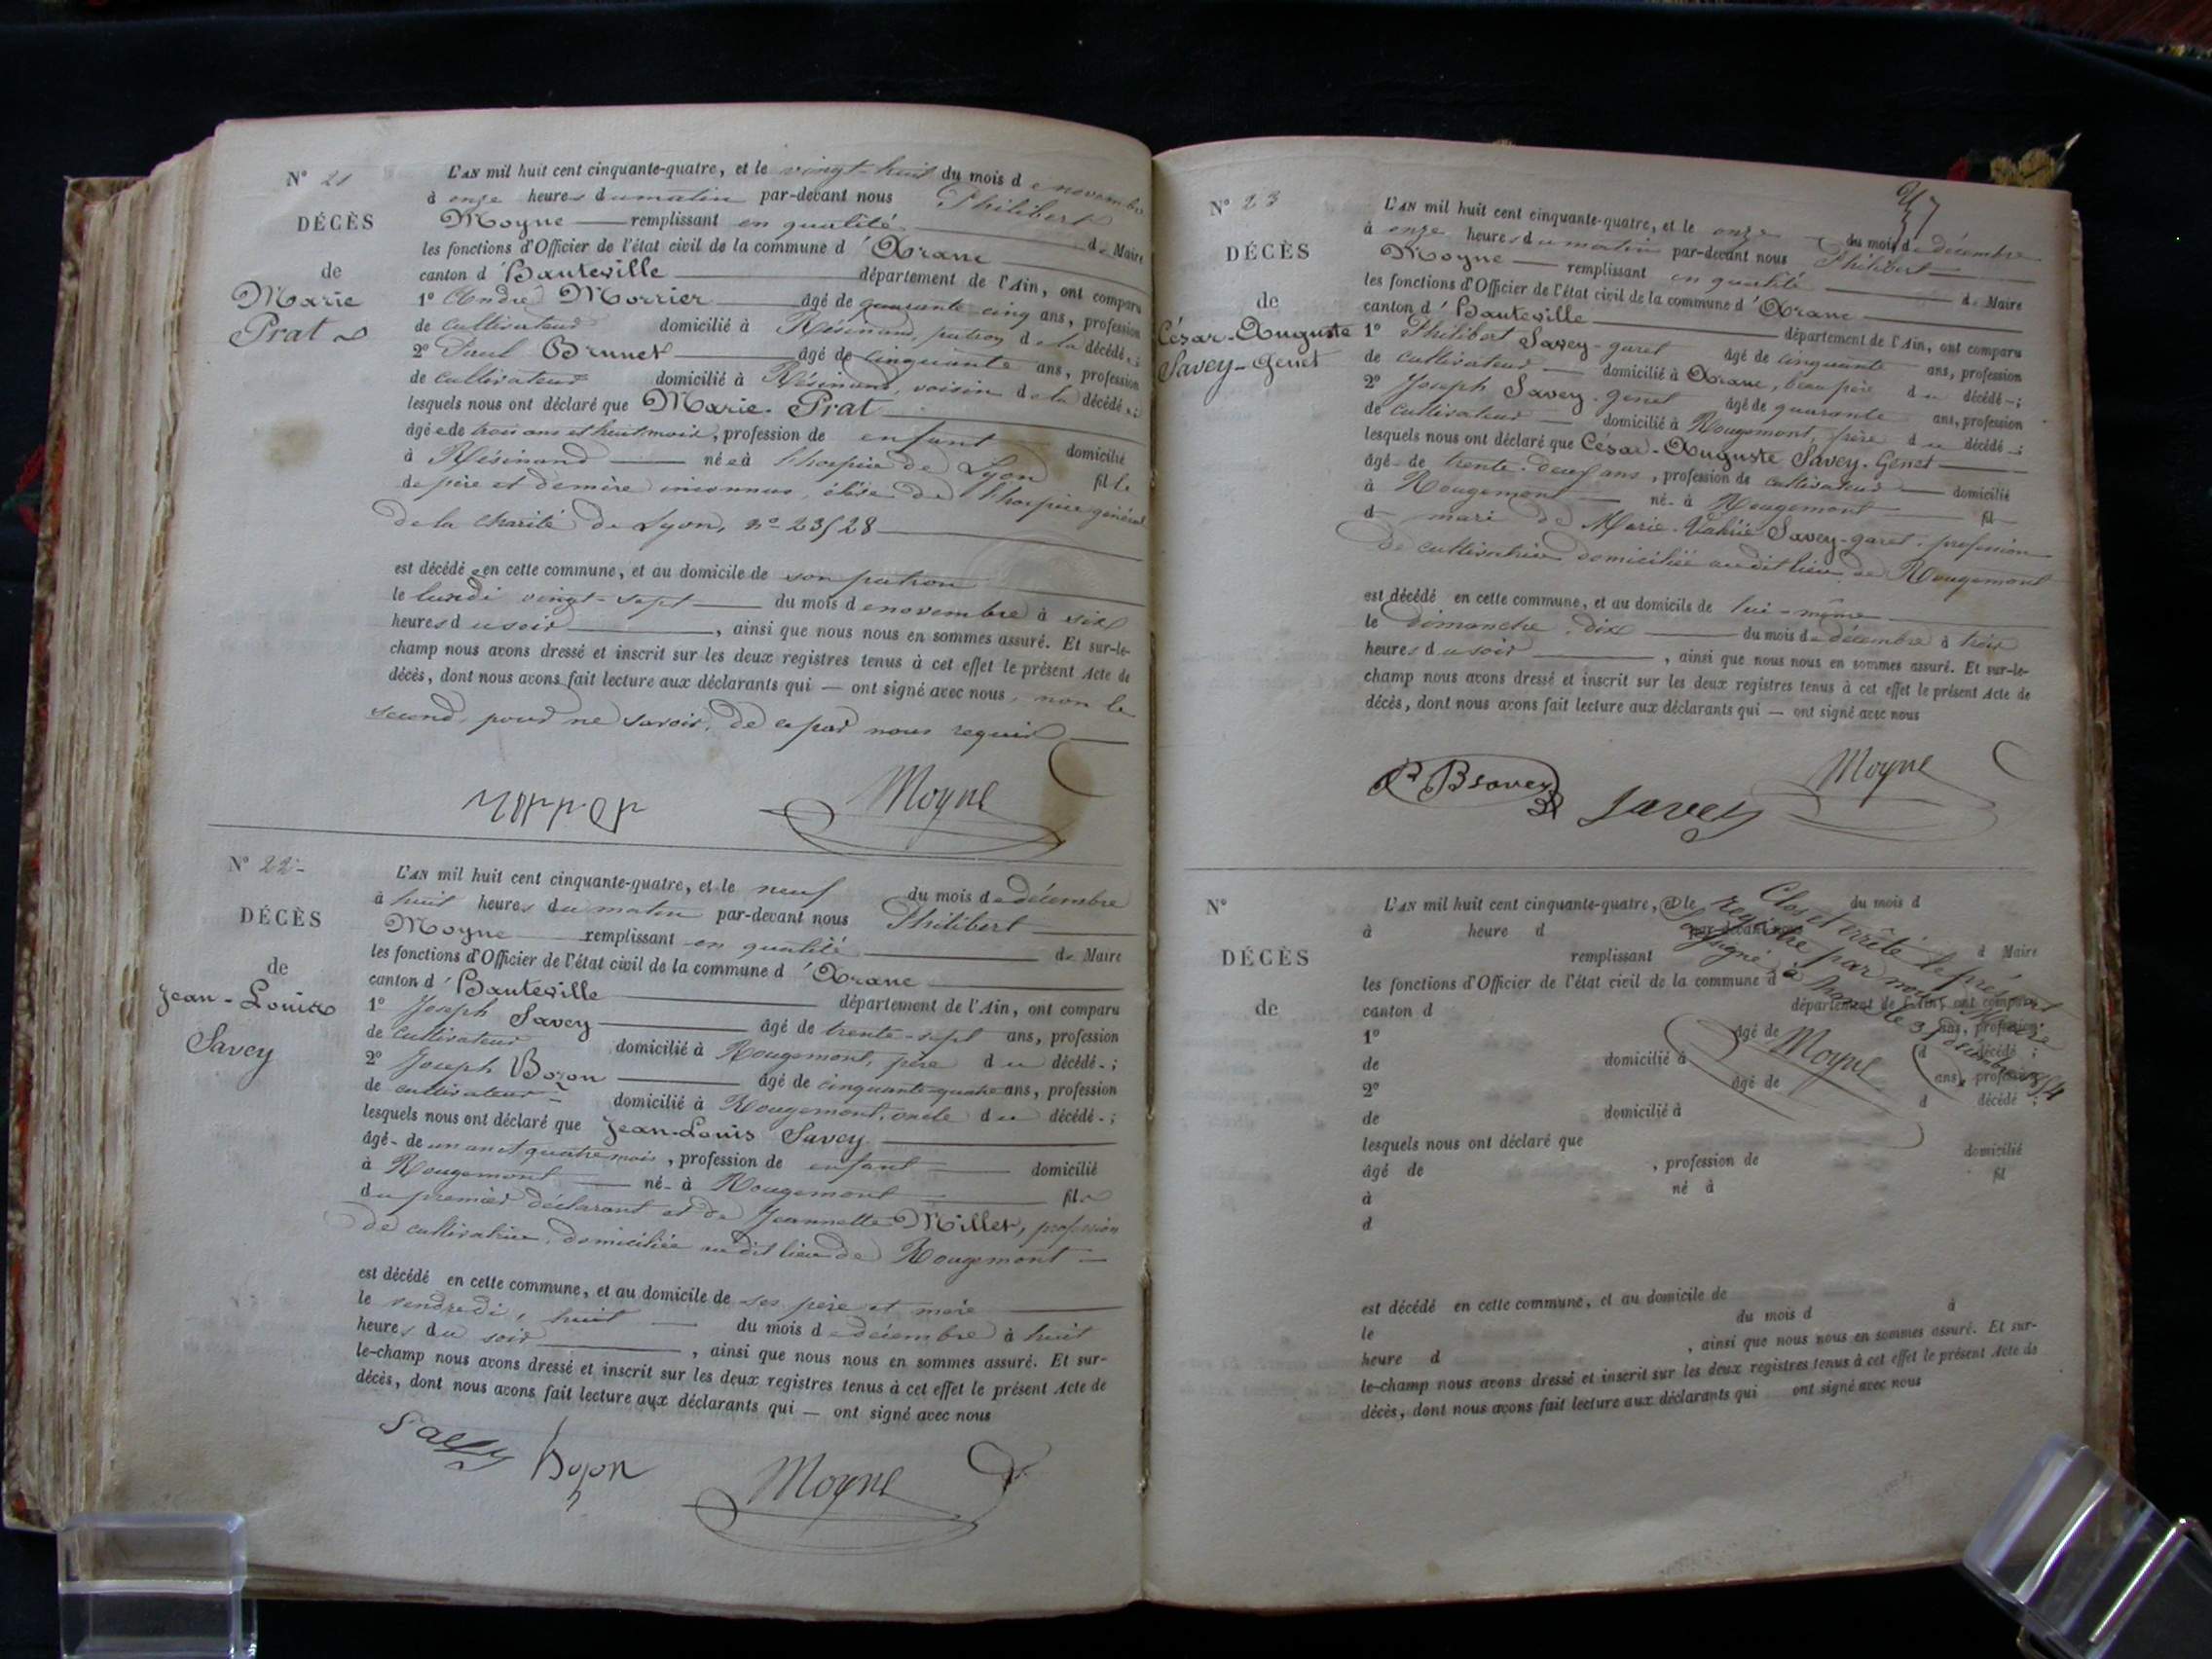 N° 21
DÉCÈS
de
Marie
Prat
L'AN mil huit cent cinquante-quatre, et le vingt-huit du mois de novembre
à onze heures du matin par-devant nous Philibert
Moyne remplissant en qualité de Maire
les fonctions d'Officier de l'état civil de la commune d'Arane
canton d'Hauteville département de l'Ain, ont comparu
1° André Morrier âgé de quarante-cinq ans, profession
de cultivateur domicilié à Résinand, patron de la décédée;
2° Paul Brunet âgé de cinquante ans, profession
de cultivateur domicilié à Résinand, voisin de la décédée;
lesquels nous ont déclaré que Marie Prat
âgée de trois ans et huit mois, profession de enfant domicilié
à Résinand née à l'hospice de Lyon fille
de père et de mère inconnus, élève de l'hospice général
de la Charité de Lyon, n° 23528
est décédée en cette commune, et au domicile de son patron
le lundi vingt-sept du mois de novembre à six
heures du soir, ainsi que nous nous en sommes assuré. Et sur-le-
champ nous avons dressé et inscrit sur les deux registres tenus à cet effet le présent Acte de
décès, dont nous avons fait lecture aux déclarants qui — ont signé avec nous, non le
second, pour ne savoir, de ce par nous requis
Moyne
N° 22
DÉCÈS
de
Jean-Louis
Savey
L'AN mil huit cent cinquante-quatre, et le neuf du mois de décembre
à huit heures du matin par-devant nous Philibert
Moyne remplissant en qualité de Maire
les fonctions d'Officier de l'état civil de la commune d'Arane
canton d'Hauteville département de l'Ain, ont comparu
1° Joseph Savey âgé de trente-sept ans, profession
de cultivateur domicilié à Rougemont, père du décédé;
2° Joseph Bozon âgé de cinquante-quatre ans, profession
de cultivateur domicilié à Rougemont, oncle du décédé;
lesquels nous ont déclaré que Jean-Louis Savey
âgé de un an et quatre mois, profession de enfant domicilié
à Rougemont né à Rougemont fils
du premier déclarant et de Jeannette Millet, profession
de cultivatrice, domiciliée au dit lieu de Rougemont
est décédé en cette commune, et au domicile de ses père et mère
le vendredi, huit du mois de décembre à huit
heures du soir, ainsi que nous nous en sommes assuré. Et sur-
le-champ nous avons dressé et inscrit sur les deux registres tenus à cet effet le présent Acte de
décès, dont nous avons fait lecture aux déclarants qui — ont signé avec nous
Savey Bozon Moyne
N° 23
DÉCÈS
de
César-Auguste
Savey-Genet
L'AN mil huit cent cinquante-quatre, et le onze du mois de décembre
à onze heures du matin par-devant nous Philibert
Moyne remplissant en qualité de Maire
les fonctions d'Officier de l'état civil de la commune d'Arane
canton d'Hauteville département de l'Ain, ont comparu
1° Philibert Savey-garet âgé de cinquante ans, profession
de cultivateur domicilié à Arane, beau père du décédé;
2° Joseph Savey-genet âgé de quarante ans, profession
de cultivateur domicilié à Rougemont, frère du décédé;
lesquels nous ont déclaré que César-Auguste Savey-Genet
âgé de trente-deux ans, profession de cultivateur domicilié
à Rougemont né à Rougemont fil
d mari de Marie Savey-garet, profession
de cultivatrice domiciliée au dit lieu de Rougemont
est décédé en cette commune, et au domicile de lui-même
le dimanche, dix du mois de décembre à trois
heures du soir, ainsi que nous nous en sommes assuré. Et sur-le-
champ nous avons dressé et inscrit sur les deux registres tenus à cet effet le présent Acte de
décès, dont nous avons fait lecture aux déclarants qui — ont signé avec nous
Savey Moyne
N°
DÉCÈS
de
L'AN mil huit cent cinquante-quatre, et le du mois d
à heure d par-devant nous
remplissant d Maire
les fonctions d'Officier de l'état civil de la commune d
canton d département de l'Ain, ont comparu
1° âgé de ans, profession
de domicilié à d décédé ;
2° âgé de ans, profession
de domicilié à d décédé ;
lesquels nous ont déclaré que
âgé de , profession de domicilié
à né à fil
d
Clos et arrêté le présent
registre par nous Maire
soussigné à Arane le 31 décembre 1854
Moyne
est décédé en cette commune, et au domicile de
le du mois d à
heure d , ainsi que nous nous en sommes assuré. Et sur-
le-champ nous avons dressé et inscrit sur les deux registres tenus à cet effet le présent Acte de
décès, dont nous avons fait lecture aux déclarants qui ont signé avec nous